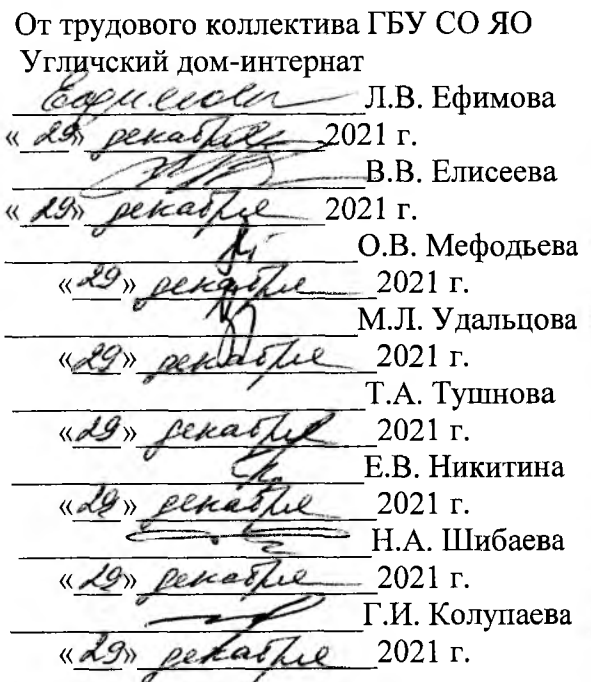 От трудового коллектива ГБУ СО ЯО
Угличский дом-интернат
Л.В. Ефимова
«29» декабря 2021 г.
В.В. Елисеева
«29» декабря 2021 г.
О.В. Мефодьева
«29» декабря 2021 г.
М.Л. Удальцова
«29» декабря 2021 г.
Т.А. Тушнова
«29» декабря 2021 г.
Е.В. Никитина
«29» декабря 2021 г.
Н.А. Шибаева
«29» декабря 2021 г.
Г.И. Колупаева
«29» декабря 2021 г.